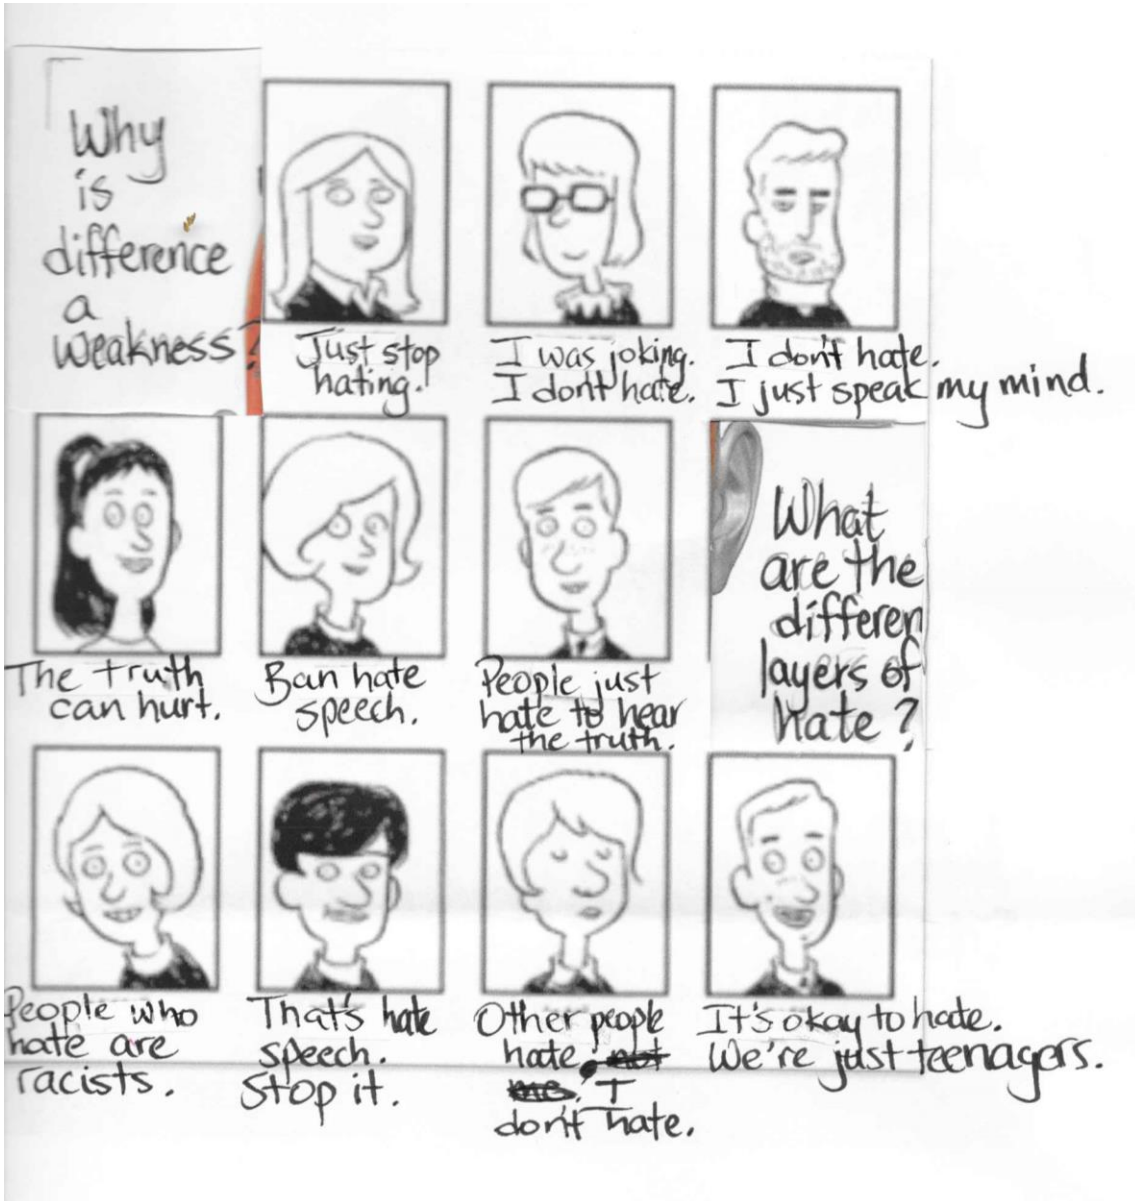 Why
is
difference
a
weakness?
Just stop
hating.
I was joking.
I don't hate.
I don't hate.
I just speak my mind.
The truth
can hurt.
Ban hate
speech.
People just
hate to hear
the truth.
What
are the
differen
layers of
hate?
People who
hate are
racists.
That's hate
speech.
Stop it.
Other people
hate, not
me. I
don't hate.
It's okay to hate.
We're just teenagers.